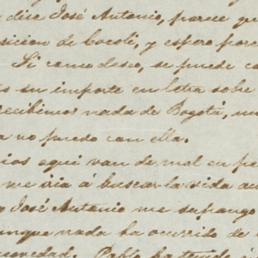 dice José Antonio, parece qu
sicion de Cocoli, y espero porc
Si como deseo, se puede co
su importe en letra sobre
recibimos nada de Bogotá, nu
a no puedo con ella.
cios aqui van de mal en pe
me iria á buscar la vida au
José Antonio me supongo
unque nada ha ocurrido de
novedad. Pablo ha tenido